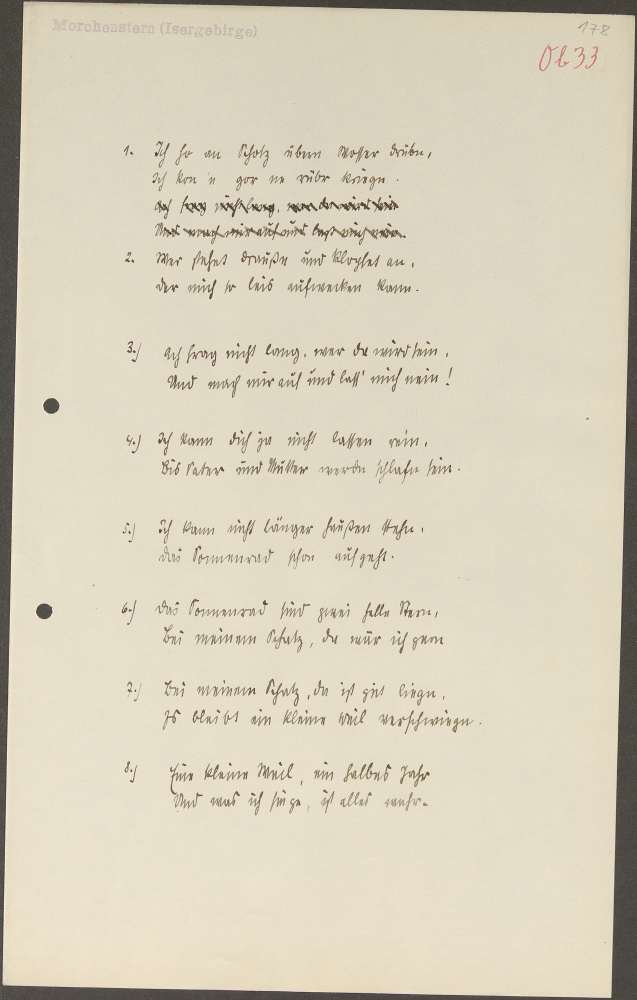 Morchenstern (Isergebirge)
178
Ob 33
1. Ich ho an Schotz übern Wosser drübn,
Ich kon 'n gor ne rübr kriegn.
Ach frag nicht lang, wer da wird sein
Und mach mir auf und lass mich nein
2. Wer stehet draußn und klopfet an,
der mich so leis aufwecken kann.
3.) Ach frag nicht lang, wer da wird sein,
Und mach mir auf und lass' mich nein!
4.) Ich kann dich ja nicht lassen rein,
Bis Vater und Mutter werdn schlafn sein.
5.) Ich kann nicht länger haußen stehn,
das Sonnenrad schon aufgeht.
6.) das Sonnenrad sind zwei helle Stern,
Bei meinem Schatz, da wär ich gern
7.) Bei meinem Schatz, da ist gut liegn,
Es bleibt ein kleine Weil verschwiegn.
8.) Eine kleine Weil, ein halbes Jahr
Und was ich singe, ist alles wahr.